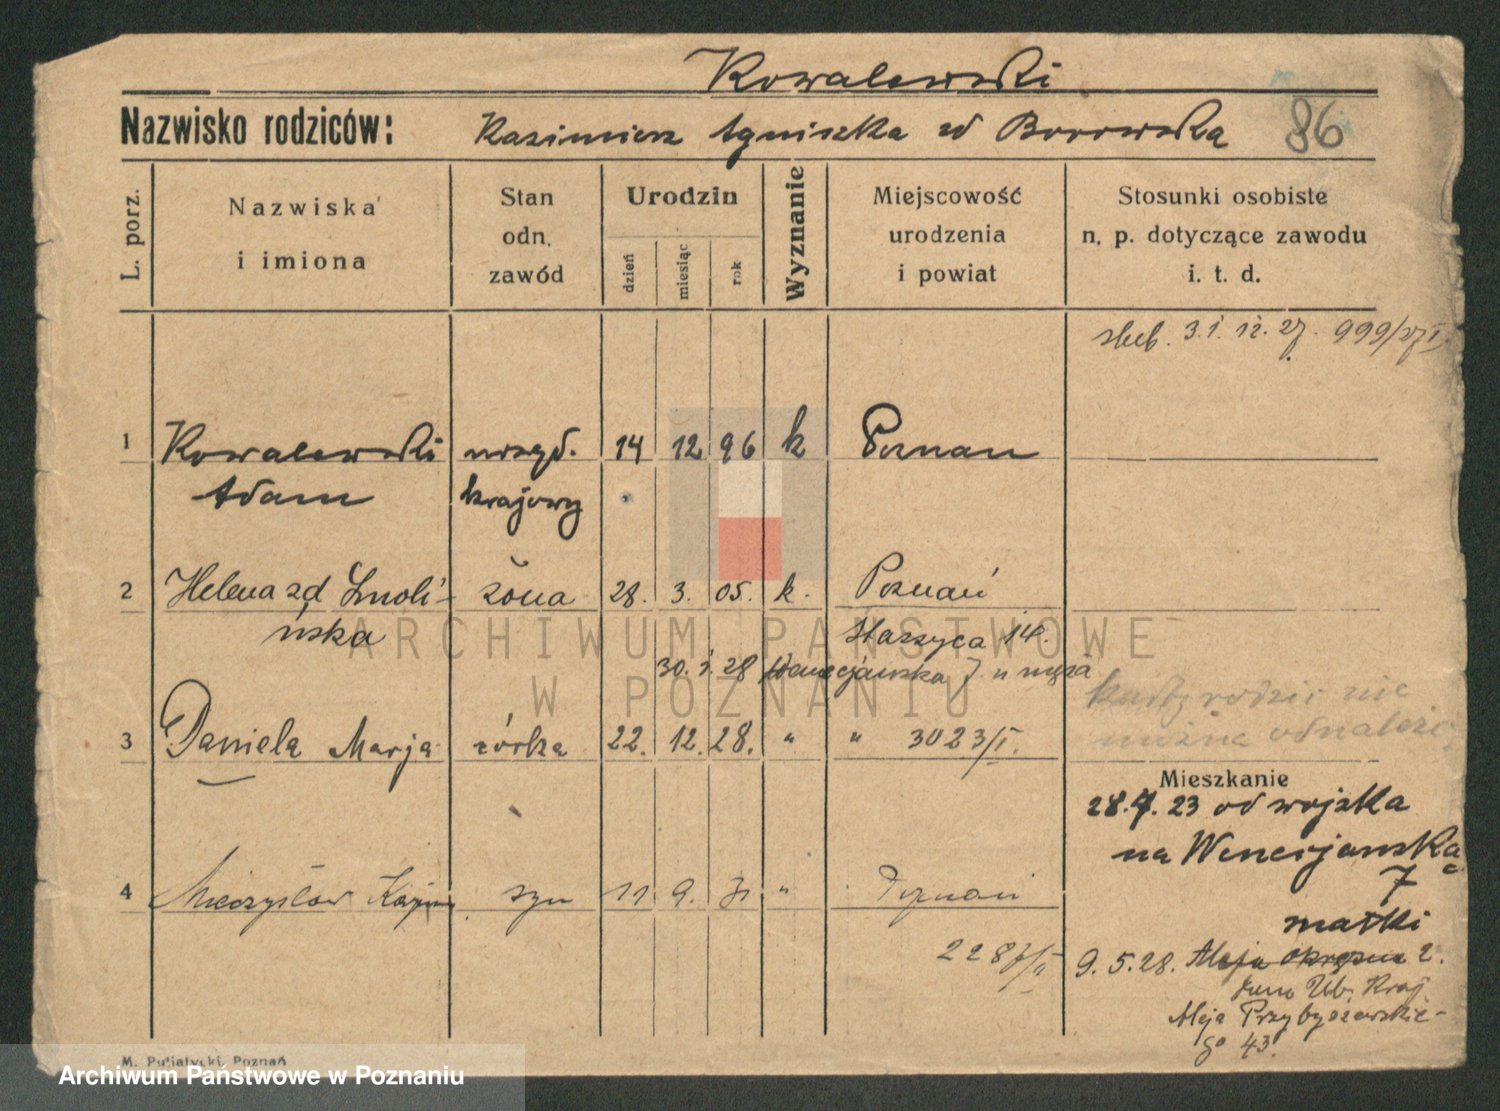 Kowalewski
Nazwisko rodziców: Kazimierz Agnieszka zd Borowska 86
L. porz.
Nazwiska i imiona
Stan odn. zawód
Urodzin
dzień miesiąc rok
Wyznanie
Miejscowość urodzenia i powiat
Stosunki osobiste n. p. dotyczące zawodu i. t. d.
ślub. 31. 12. 27. 999/27 I.
1 Kowalewski urzęd. 14 12 96 k Poznań
Adam krajowy
2 Helena zd Smoli- żona 28. 3. 05. k. Poznań
ńska Staszyca 14.
30. 1. 28 Wenecjańska 7 u męża
3 Daniela Marja córka 22. 12. 28. " " 3023/I.
nie
można odnaleźć
Mieszkanie
28.4.23 od wojska
na Wenecjańską
7
matki
4 Mieczysław syn 11 9. 31 " Poznań
2287/II
9. 5. 28. Aleja okrężna 2.
Ub. Kraj.
Aleja Przybyszewskie-
go 43.
M. Putiatycki, Poznań
ARCHIWUM PAŃSTWOWE
W POZNANIU
Archiwum Państwowe w Poznaniu